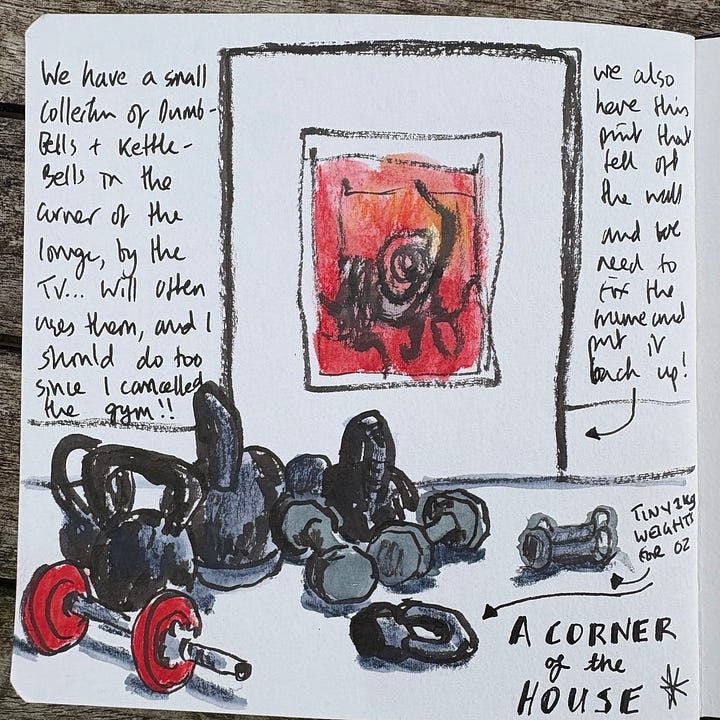 We have a small
collection of Dumb-
Bells + Kettle-
Bells in the
corner of the
lounge, by the
TV... Will often
uses them, and I
should do too
since I cancelled
the gym!!
we also
have this
print that
fell off
the wall
and we
need to
fix the
frame and
put it
back up!
TINY 2kg
WEIGHTS
FOR OZ
A CORNER
of the
HOUSE